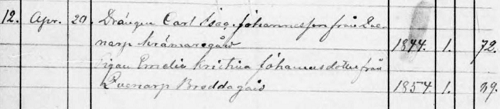 12. Apr. 20. Drängen Carl Isac Johannesson från Sve-
narp Krämaregård 1844. 1. 72.
pigan Emelie Kristina Johannesdotter från
Svenarp Breddagård 1854. 1. 39.